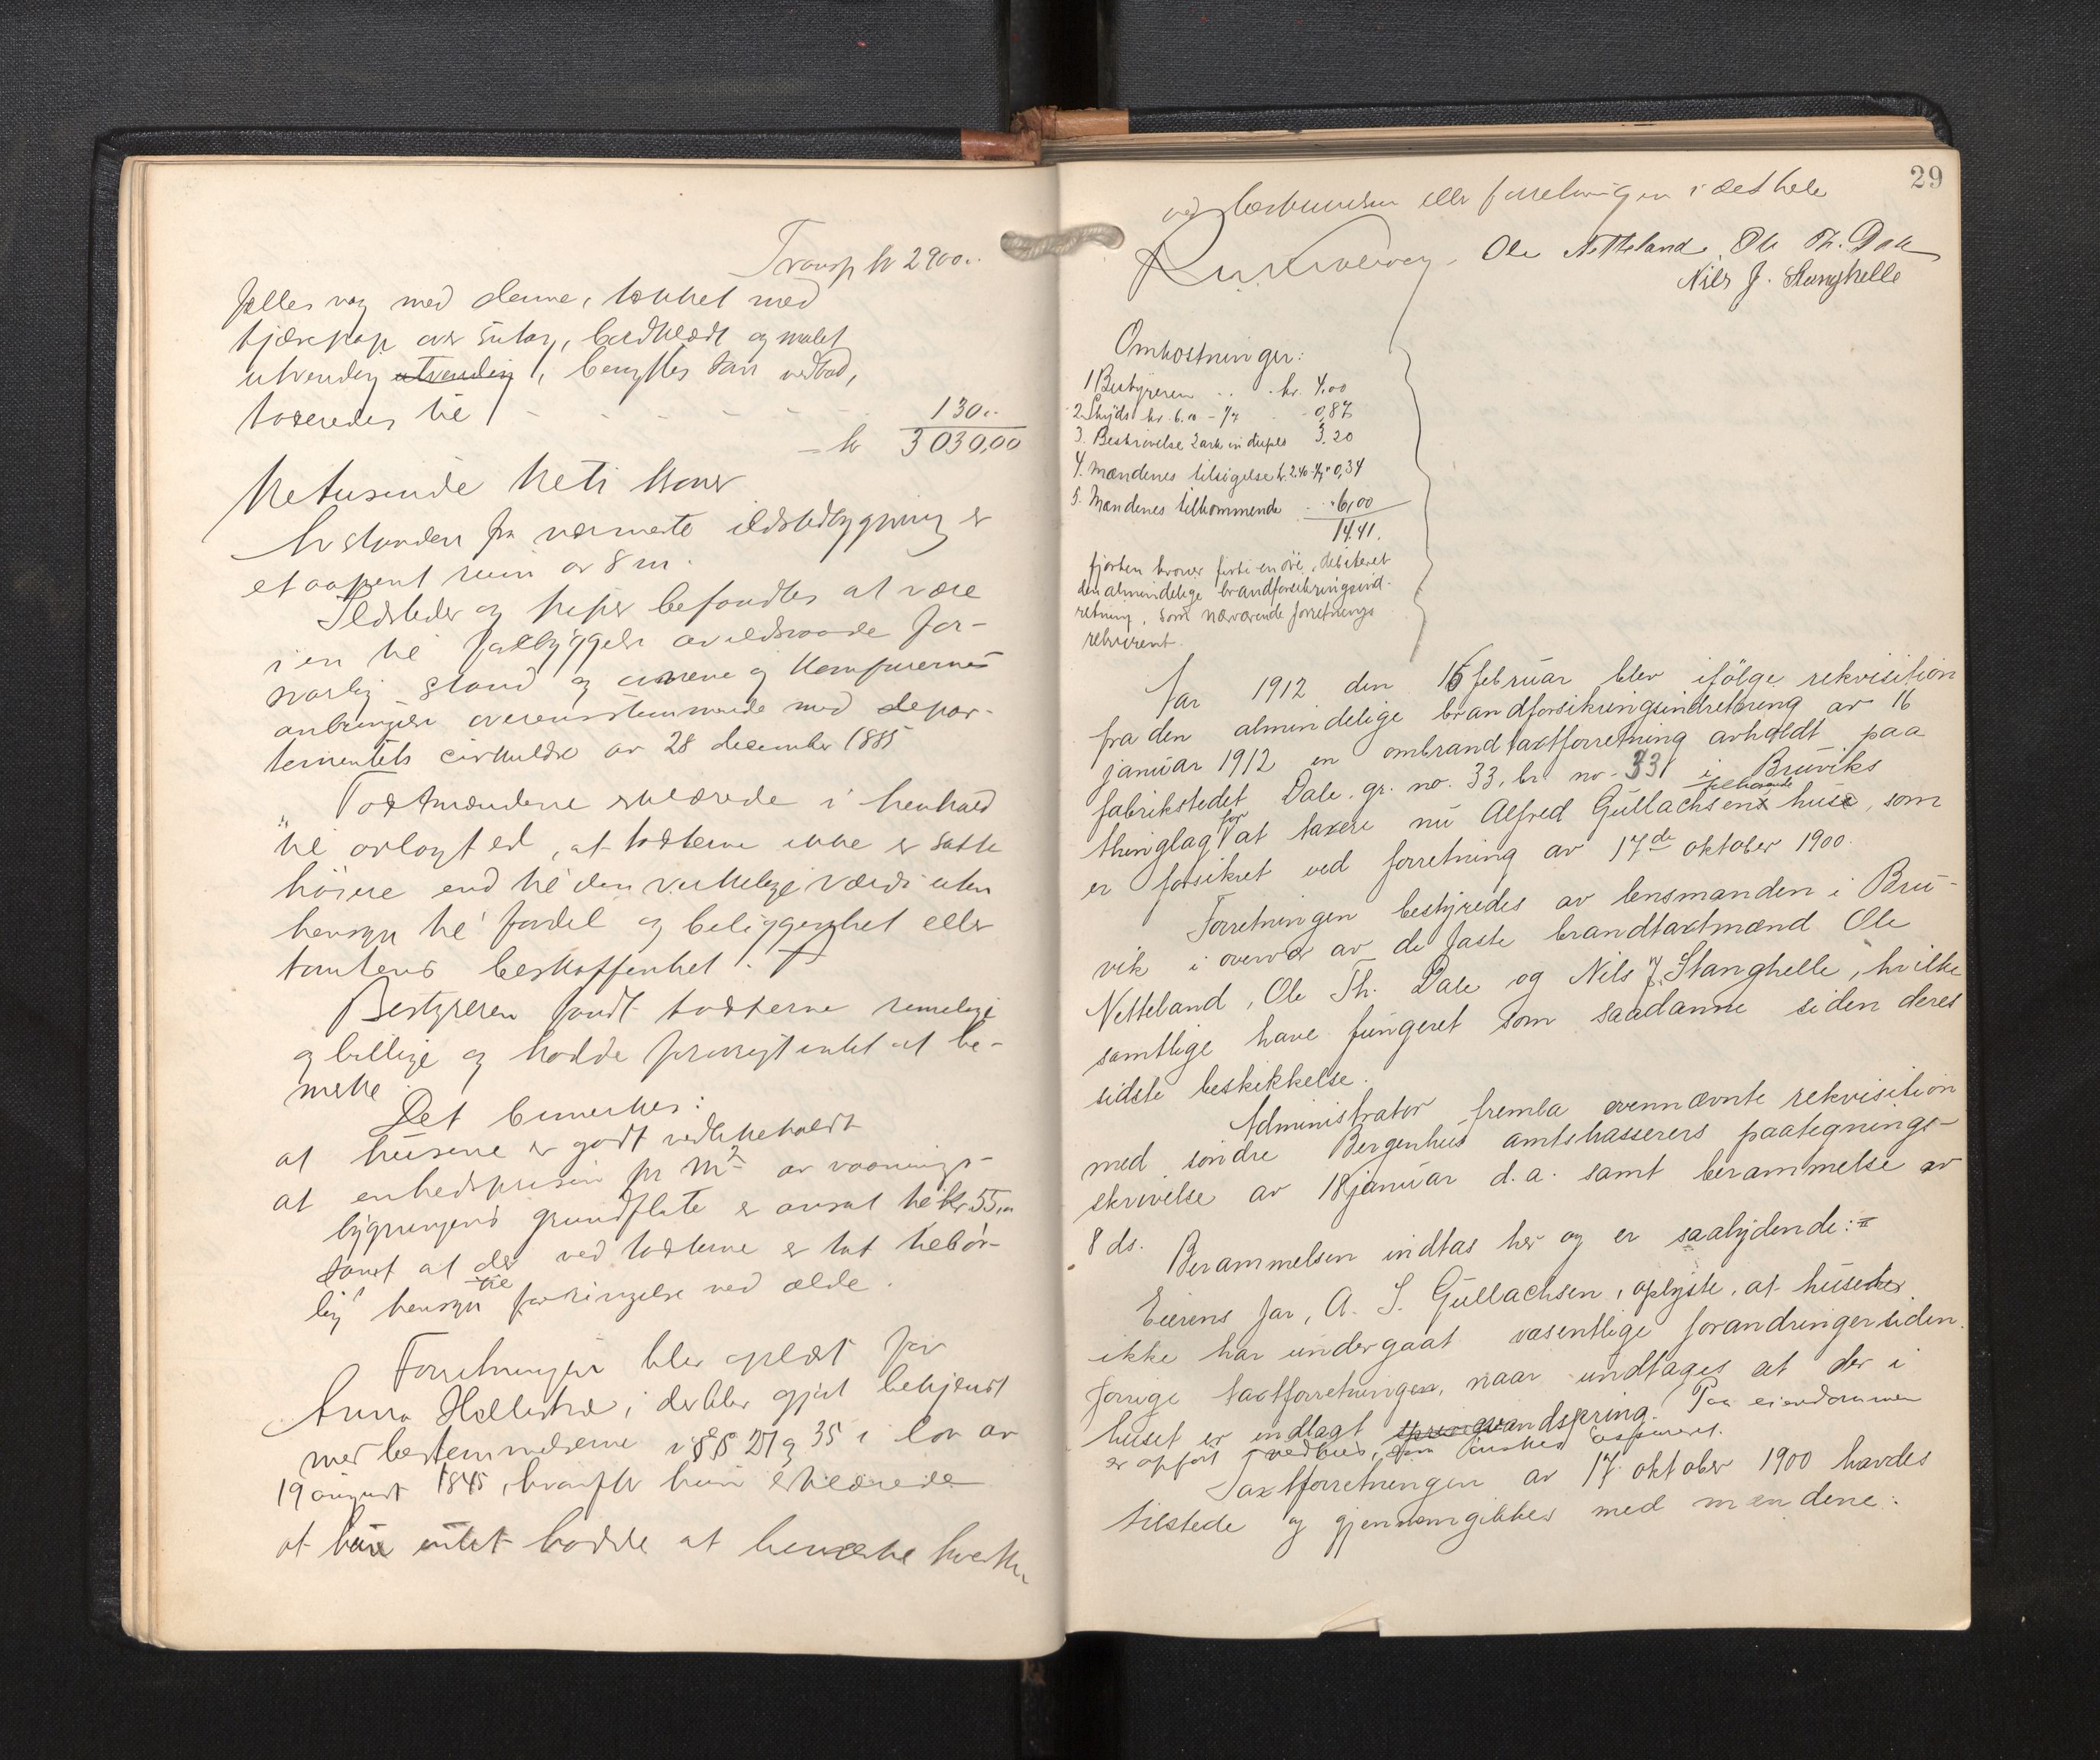 Transp kr 2900..
fælles væg med denne, tækket med
tjærepap over sutag, bordklædt og malet
utvendig utvendig, benyttes som vedbod,
taxeredes til - - - - - - 130..
- kr 3030,00
tretusinde treti kroner
Avstanden fra nærmeste ildstedbygning er
et aapent rum av 8 m.
Ildsteder og piper befandtes at være
i en til forebyggelse av ildsvaade for-
svarlig stand og ovnene og komfurernes
anbringelse overensstemmende med depar-
tementets cirkulære av 28 december 1885
Taxtmændene erklærede i henhold
til avlagt ed, at taxterne ikke er satte
høiere end til den virkelige værdi uten
hensyn til fordel og beliggenhet eller
tomtens beskaffenhet.
Bestyreren fandt taxterne rimelige
og billige og hadde forøvrigt intet at be-
merke.
Det bemerkes:
at husene er godt vedlikeholdt
at enhedsprisen pr m² av vaanings-
bygningens grundflate er ansat til kr 55,00
samt at der ved taxterne er tat tilbør-
lig hensyn til forringelse ved ælde.
Forretningen blev oplæst for
Anna Hellestræ, der blev gjort bekjendt
med bestemmelserne i §§ 27 og 35 i lov av
19 august 1845, hvorefter hun erklærede
at hun intet hadde at bemerke hverken
29
ved beskrivelsen eller forretningen i det hele
Ole Netteland. Ole Th. Dale
Nils J. Stanghelle
Omkostninger:
1 Bestyreren .. . kr. 4.00
2. Skyds kr. 6.00 - 1/7 - 0,87
3. Beskrivelse 2 ark in duplo 3.20
4. Mændenes tilsigelse kr. 2.40 - 1/7 " 0,34
5. Mændenes tilkommende .. "6,00
14.41.
fjorten kroner firti en øre, debiteret
den almindelige brandforsikringsind-
retning, som nærværende forretnings
rekvirent.
Aar 1912 den 16 februar blev ifølge rekvisition
fra den almindelige brandforsikringsindretning av 16
januar 1912 en ombrandtaxtforretning avholdt paa
fabrikstedet Dale. gr. no. 33, br. no. 331 i Bruviks
thinglag for at taxere nu Alfred Gullachsen tilhørende huse, som
er forsikret ved forretning av 17de oktober 1900.
Forretningen bestyredes av lensmanden i Bru-
vik i overvær av de faste brandtaxtmænd Ole
Netteland, Ole Th. Dale og Nils J. Stanghelle, hvilke
samtlige have fungeret som saadanne siden deres
sidste beskikkelse.
Administrator fremla ovennævnte rekvisition
med søndre Bergenhus amtskasserers paategnings-
skrivelse av 18 januar d.a. samt berammelse av
8 ds.
Berammelsen indtas her og er saalydende: =
Eierens far, A. S. Gullachsen, oplyste, at huset her
ikke har undergaat væsentlige forandringer siden
forrige taxtforretningen, naar undtages at der i
huset er indlagt vandspring. Paa eiendommen
er opført vedhus, som ønskes assureret.
Taxtforretningen av 17 oktober 1900 havdes
tilstede og gjennomgikkes med mændene: